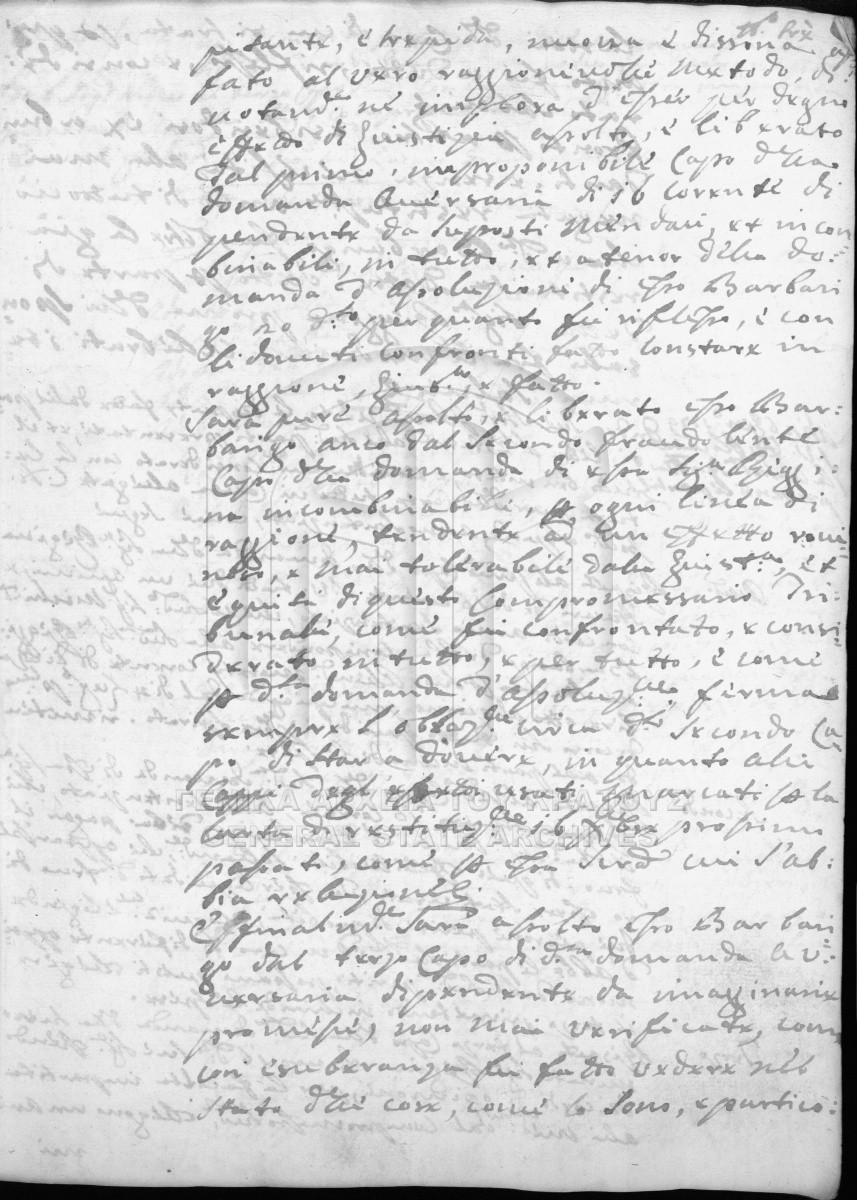 pitante, è trepida, nuova è dissona
fato al vero raggionevole Metodo, di
notand.e nè implora d'esser per degno
effetto di Giustizia assolto, è liberato
dal primo, improponibile Capo della
domanda Aversaria di 16 Corente di
pendente da suposti Mendari, et incon
binabili, in tutto, et a tenor della do=
manda d'Asoluzioni di esso Barbari
go 20 d.to per quanto fù riflesso, è con
li dovuti confronti fatto constare in
raggione, Giust.a, e fatto.
Sarà pure asolto, e liberato esso Bar=
barigo anco dal secondo fraudolente
Capo della domanda di essa
na incombinabile, ogni linea di
raggione, tendente ad un effetto rovi=
noso, e mai tolerabile dalla Giust.a, et
equità di questo Compromessario Tri=
bunale, come fù confrontato, e consi=
derato in tutto, e per tutto, è come
d.ta domanda d'Asoluz.ne, ferma
sempre l'obligaz.ne circa d.to secondo Ca
po di star a dovere, in quanto alli
Cappi degl'effetti usati marcati la
Carta di restituz.ne 16 prossimo
passato, come essa cui s'ab=
bia relazione.
E finalm.te Sarà assolto esso Barbari
go dal terzo Capo di d.ta domanda Av=
versaria dipendente da imagginarie
promesse, non mai verificate, come
con esuberanza fù fatto vedere nel
stato delle cose, come lo sono, e partico=
ΓΕΝΙΚΑ ΑΡΧΕΙΑ ΤΟΥ ΚΡΑΤΟΥΣ
GENERAL STATE ARCHIVES